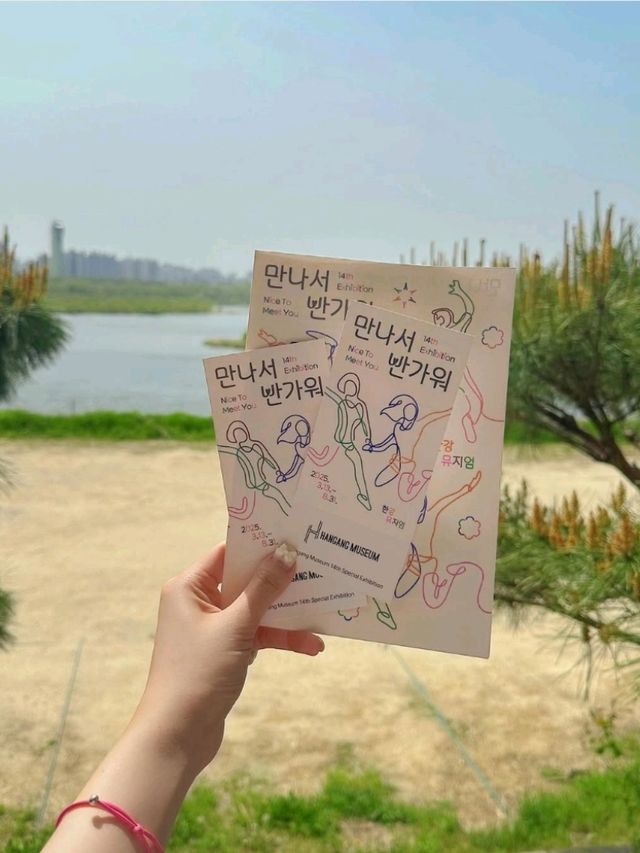 만나서 14th Exhibition
Nice To Meet You 반가워
만나서
한강
뮤지엄
만나서 14th Exhibition
Nice To Meet You 빤가워
2025.
3.13.-
8.31.
HANGANG MUSEUM
Museum 14th Special Exhibition
만나서 14th Exhibition
Nice To Meet You 빤가워
2025.
3.13.-
8.31.
한강
뮤지엄
HANGANG MUSEUM
Hangang Museum 14th Special Exhibition